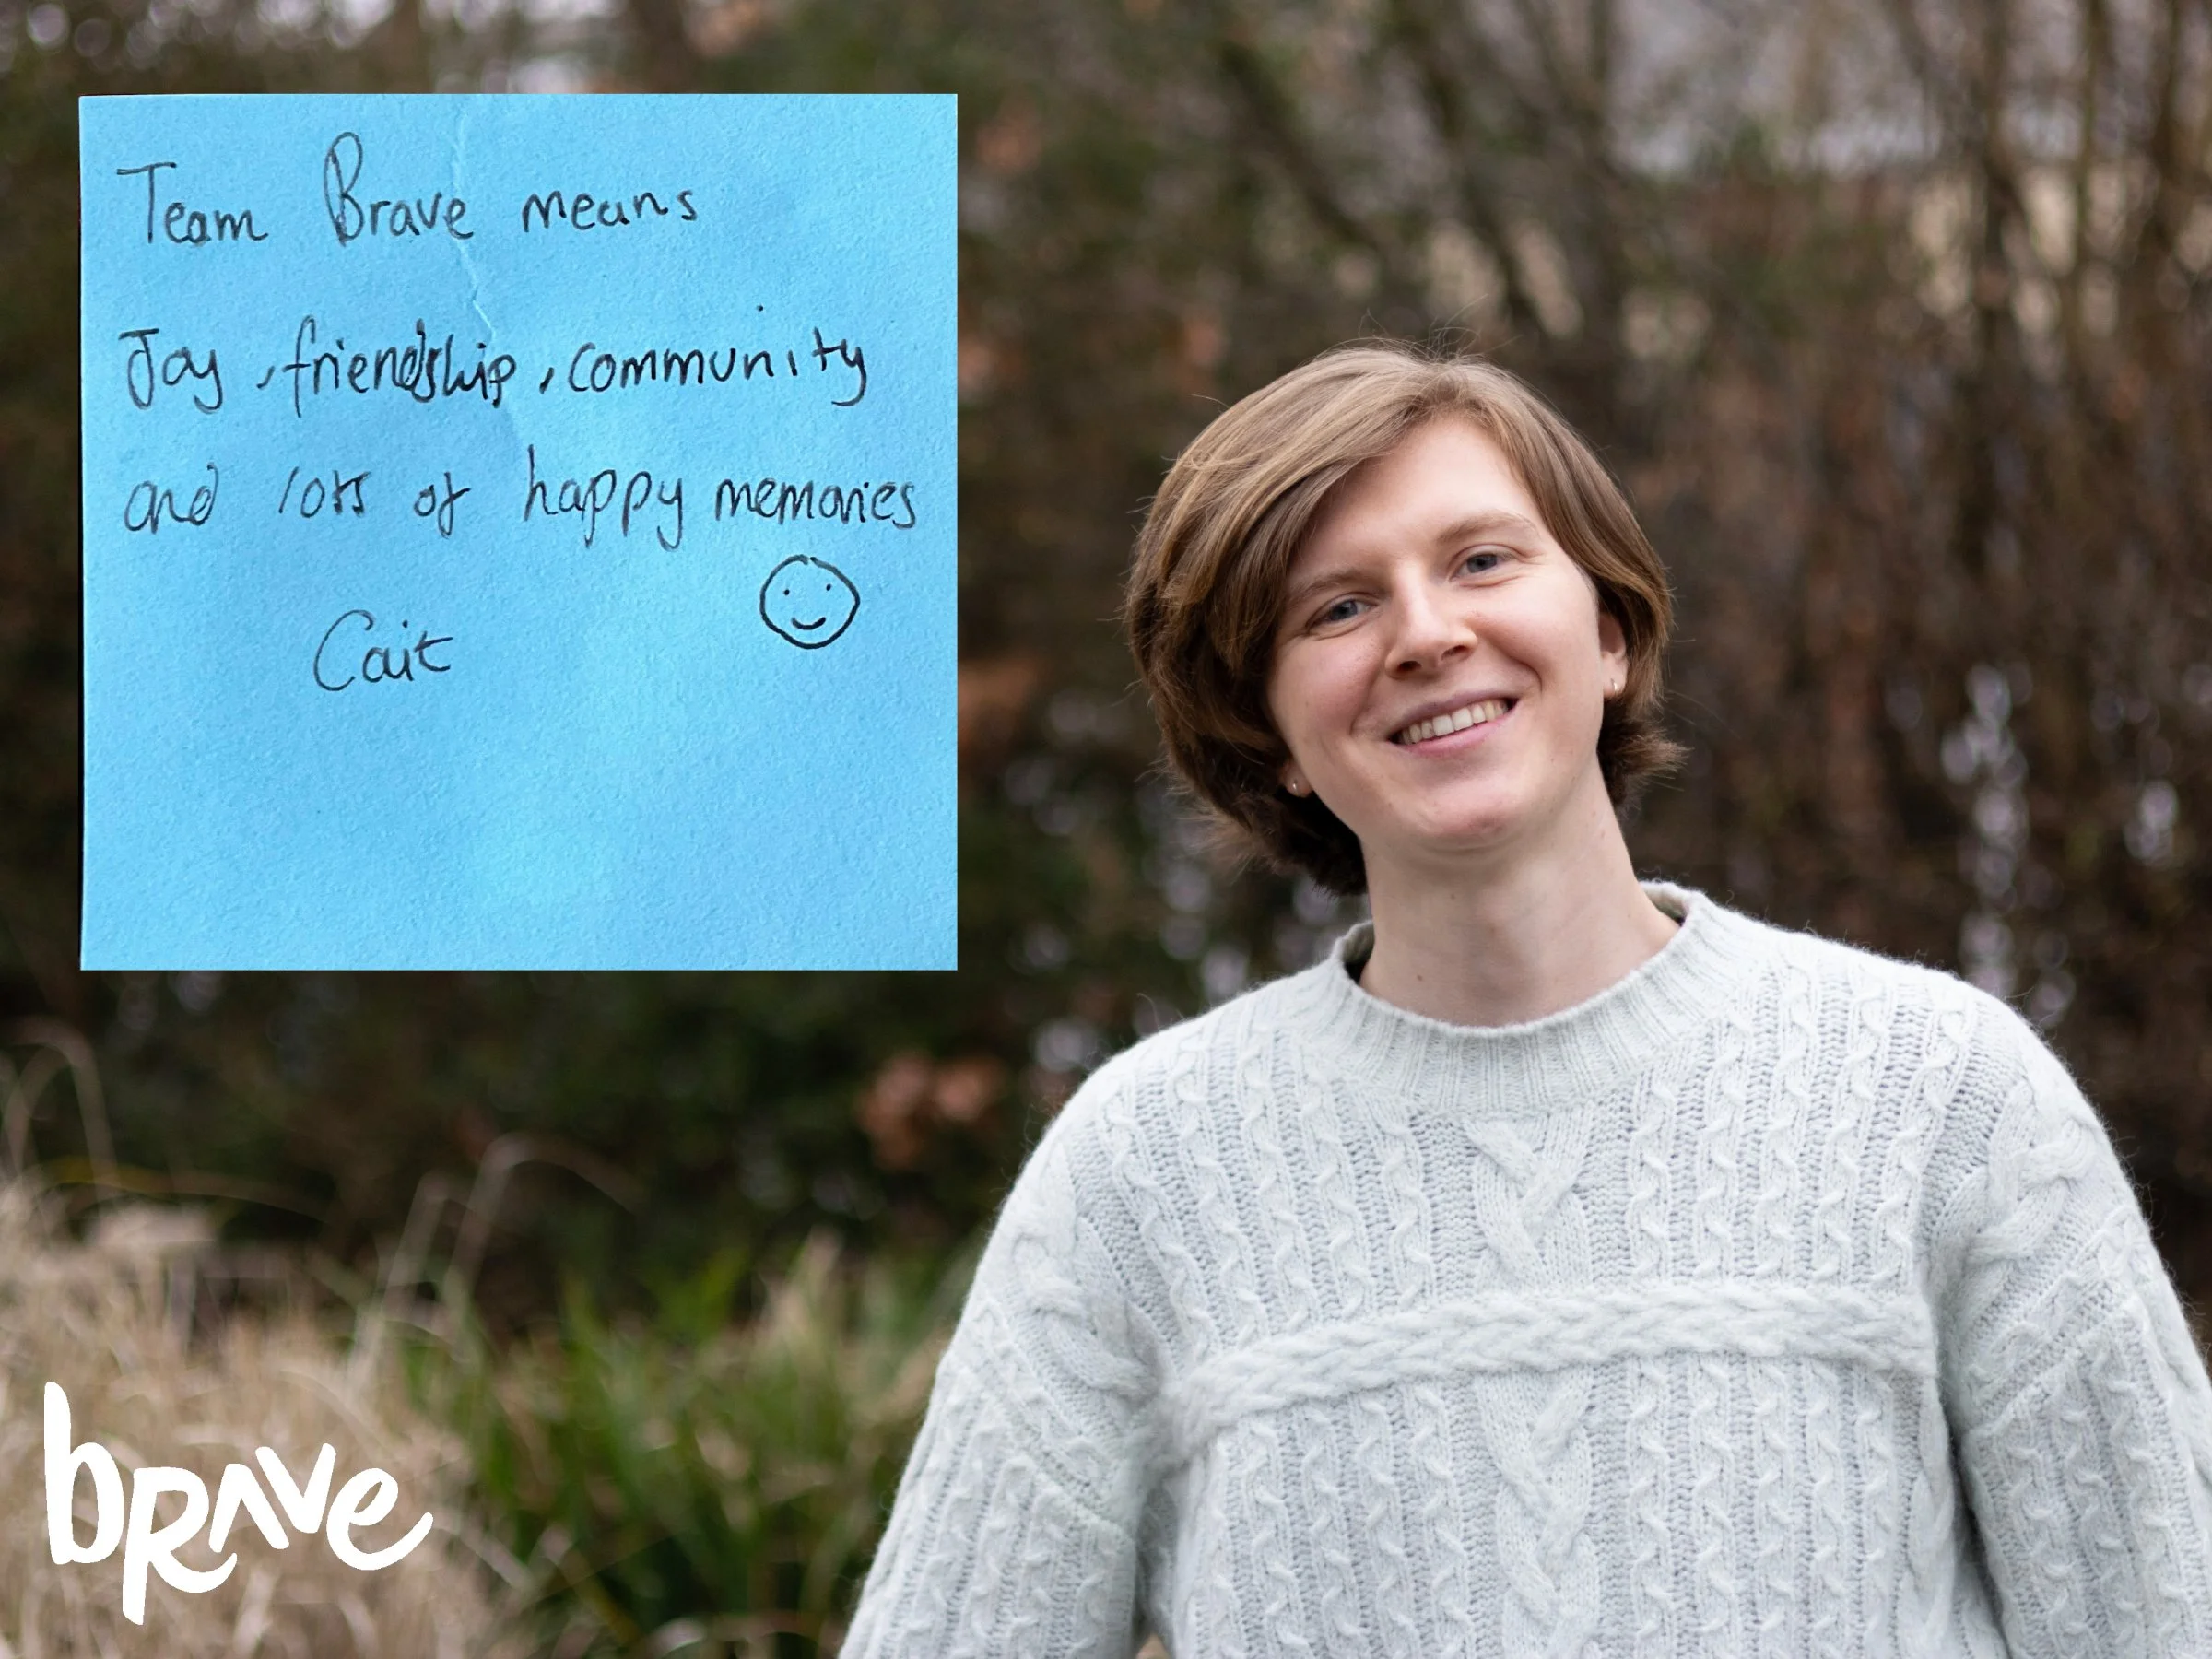 Team Brave means
Joy, friendship, community
and lots of happy memories
Cait
brave